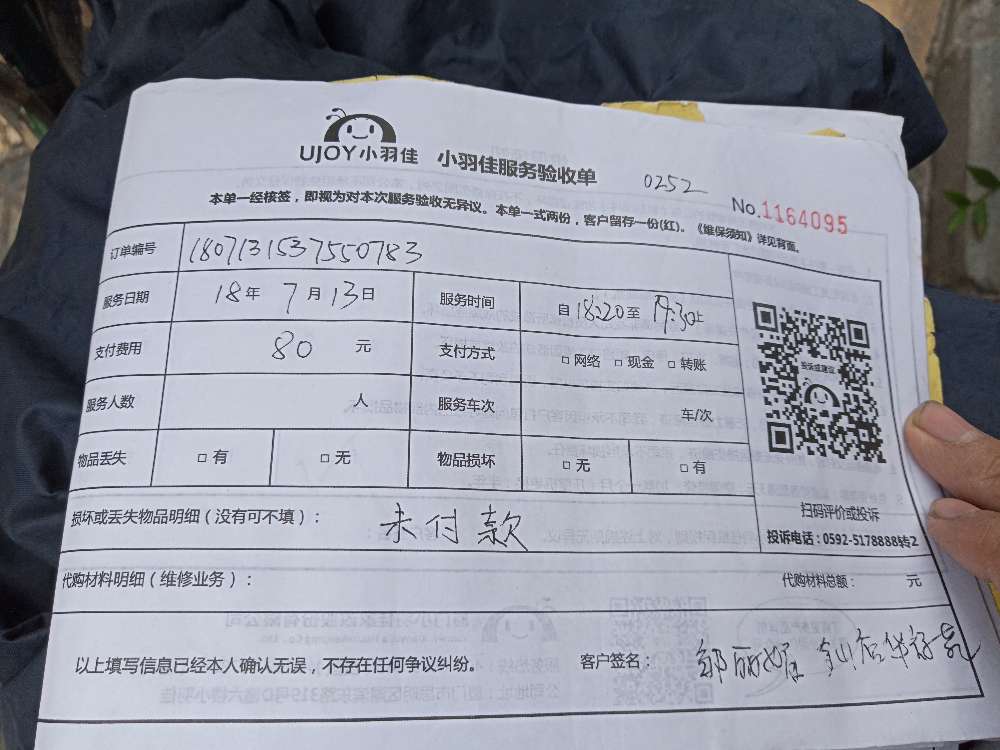 UJOY小羽佳 小羽佳服务验收单 0252
No.1164095
本单一经核签，即视为对本次服务验收无异议。本单一式两份，客户留存一份(红)。《维保须知》详见背面。
订单编号 1807131537550783
服务日期 18年 7月13日 服务时间 自18:20至19:30止
支付费用 80 元 支付方式 □网络 □现金 □转账
服务人数 人 服务车次 车/次
投诉或建议
物品丢失 □有 □无 物品损坏 □无 □有
扫码评价或投诉
投诉电话：0592-5178888转2
损坏或丢失物品明细（没有可不填）： 未付款
代购材料明细（维修业务）： 代购材料总额： 元
以上填写信息已经本人确认无误，不存在任何争议纠纷。 客户签名：